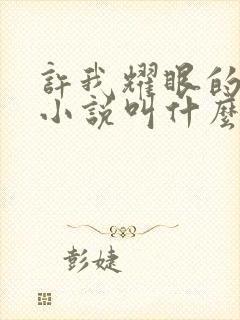 許我耀眼的
小說叫什麼
彭婕